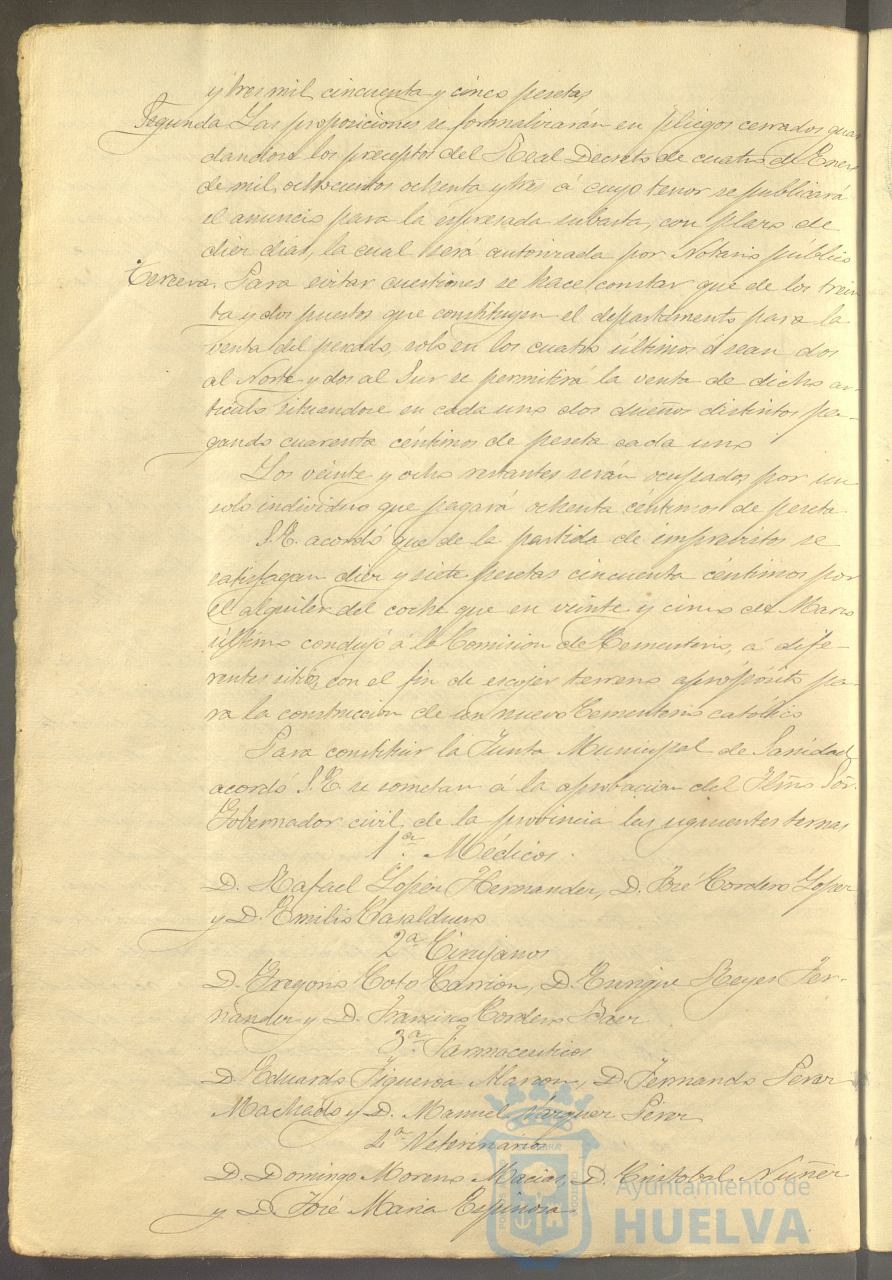 y tres mil cincuenta y cinco pesetas
Segunda Las proposiciones se formalizarán en pliegos cerrados guar
dandose los preceptos del Real Decreto de cuatro de Enero
de mil ochocientos ochenta y tres á cuyo tenor se publicará
el anuncio para la espresada subasta, con plazo de
diez dias, la cual será autorizada por Notario público
Tercera. Para evitar cuestiones se hace constar que de los trein
ta y dos puestos que constituyen el departamento para la
venta del pescado, solo en los cuatro últimos ó sean dos
al Norte y dos al Sur se permitirá la venta de dicho ar
ticulo situandose en cada uno dos dueños distintos pa-
gando cuarenta céntimos de peseta cada uno
Los veinte y ocho restantes serán ocupados por un
solo individuo que pagará ochenta céntimos de peseta
S.E. acordó que de la partida de imprevistos se
satisfagan diez y siete pesetas cincuenta céntimos por
el alquiler del coche que en veinte y cinco de Marzo
último condujó á la Comision de Cementerio, á dife-
rentes sitios, con el fin de escojer terreno apropósito pa-
ra la construccion de un nuevo Cementerio católico
Para constituir la Junta Municipal de Sanidad
acordó S.E. se sometan á la aprobacion del Ilmo Sor.
Gobernador civil de la provincia las siguientes ternas
1ª Médicos.
D. Rafael Lopez Hernandez, D. José Cordero Lopez
y D. Emilio Casalduero
2ª Cirujanos
D. Gregorio Coto Carrion, D. Enrique Reyes Fer-
nandez y D. Francisco Cordero Baez
3ª Farmaceuticos
D. Eduardo Figueroa D. Fernando Perez
Machado y D. Manuel Vazquez Perez
4ª Veterinarios
D. Domingo Moreno Macias, D. Cristobal Nuñez
y D. José Maria Espinosa
Ayuntamiento de
HUELVA